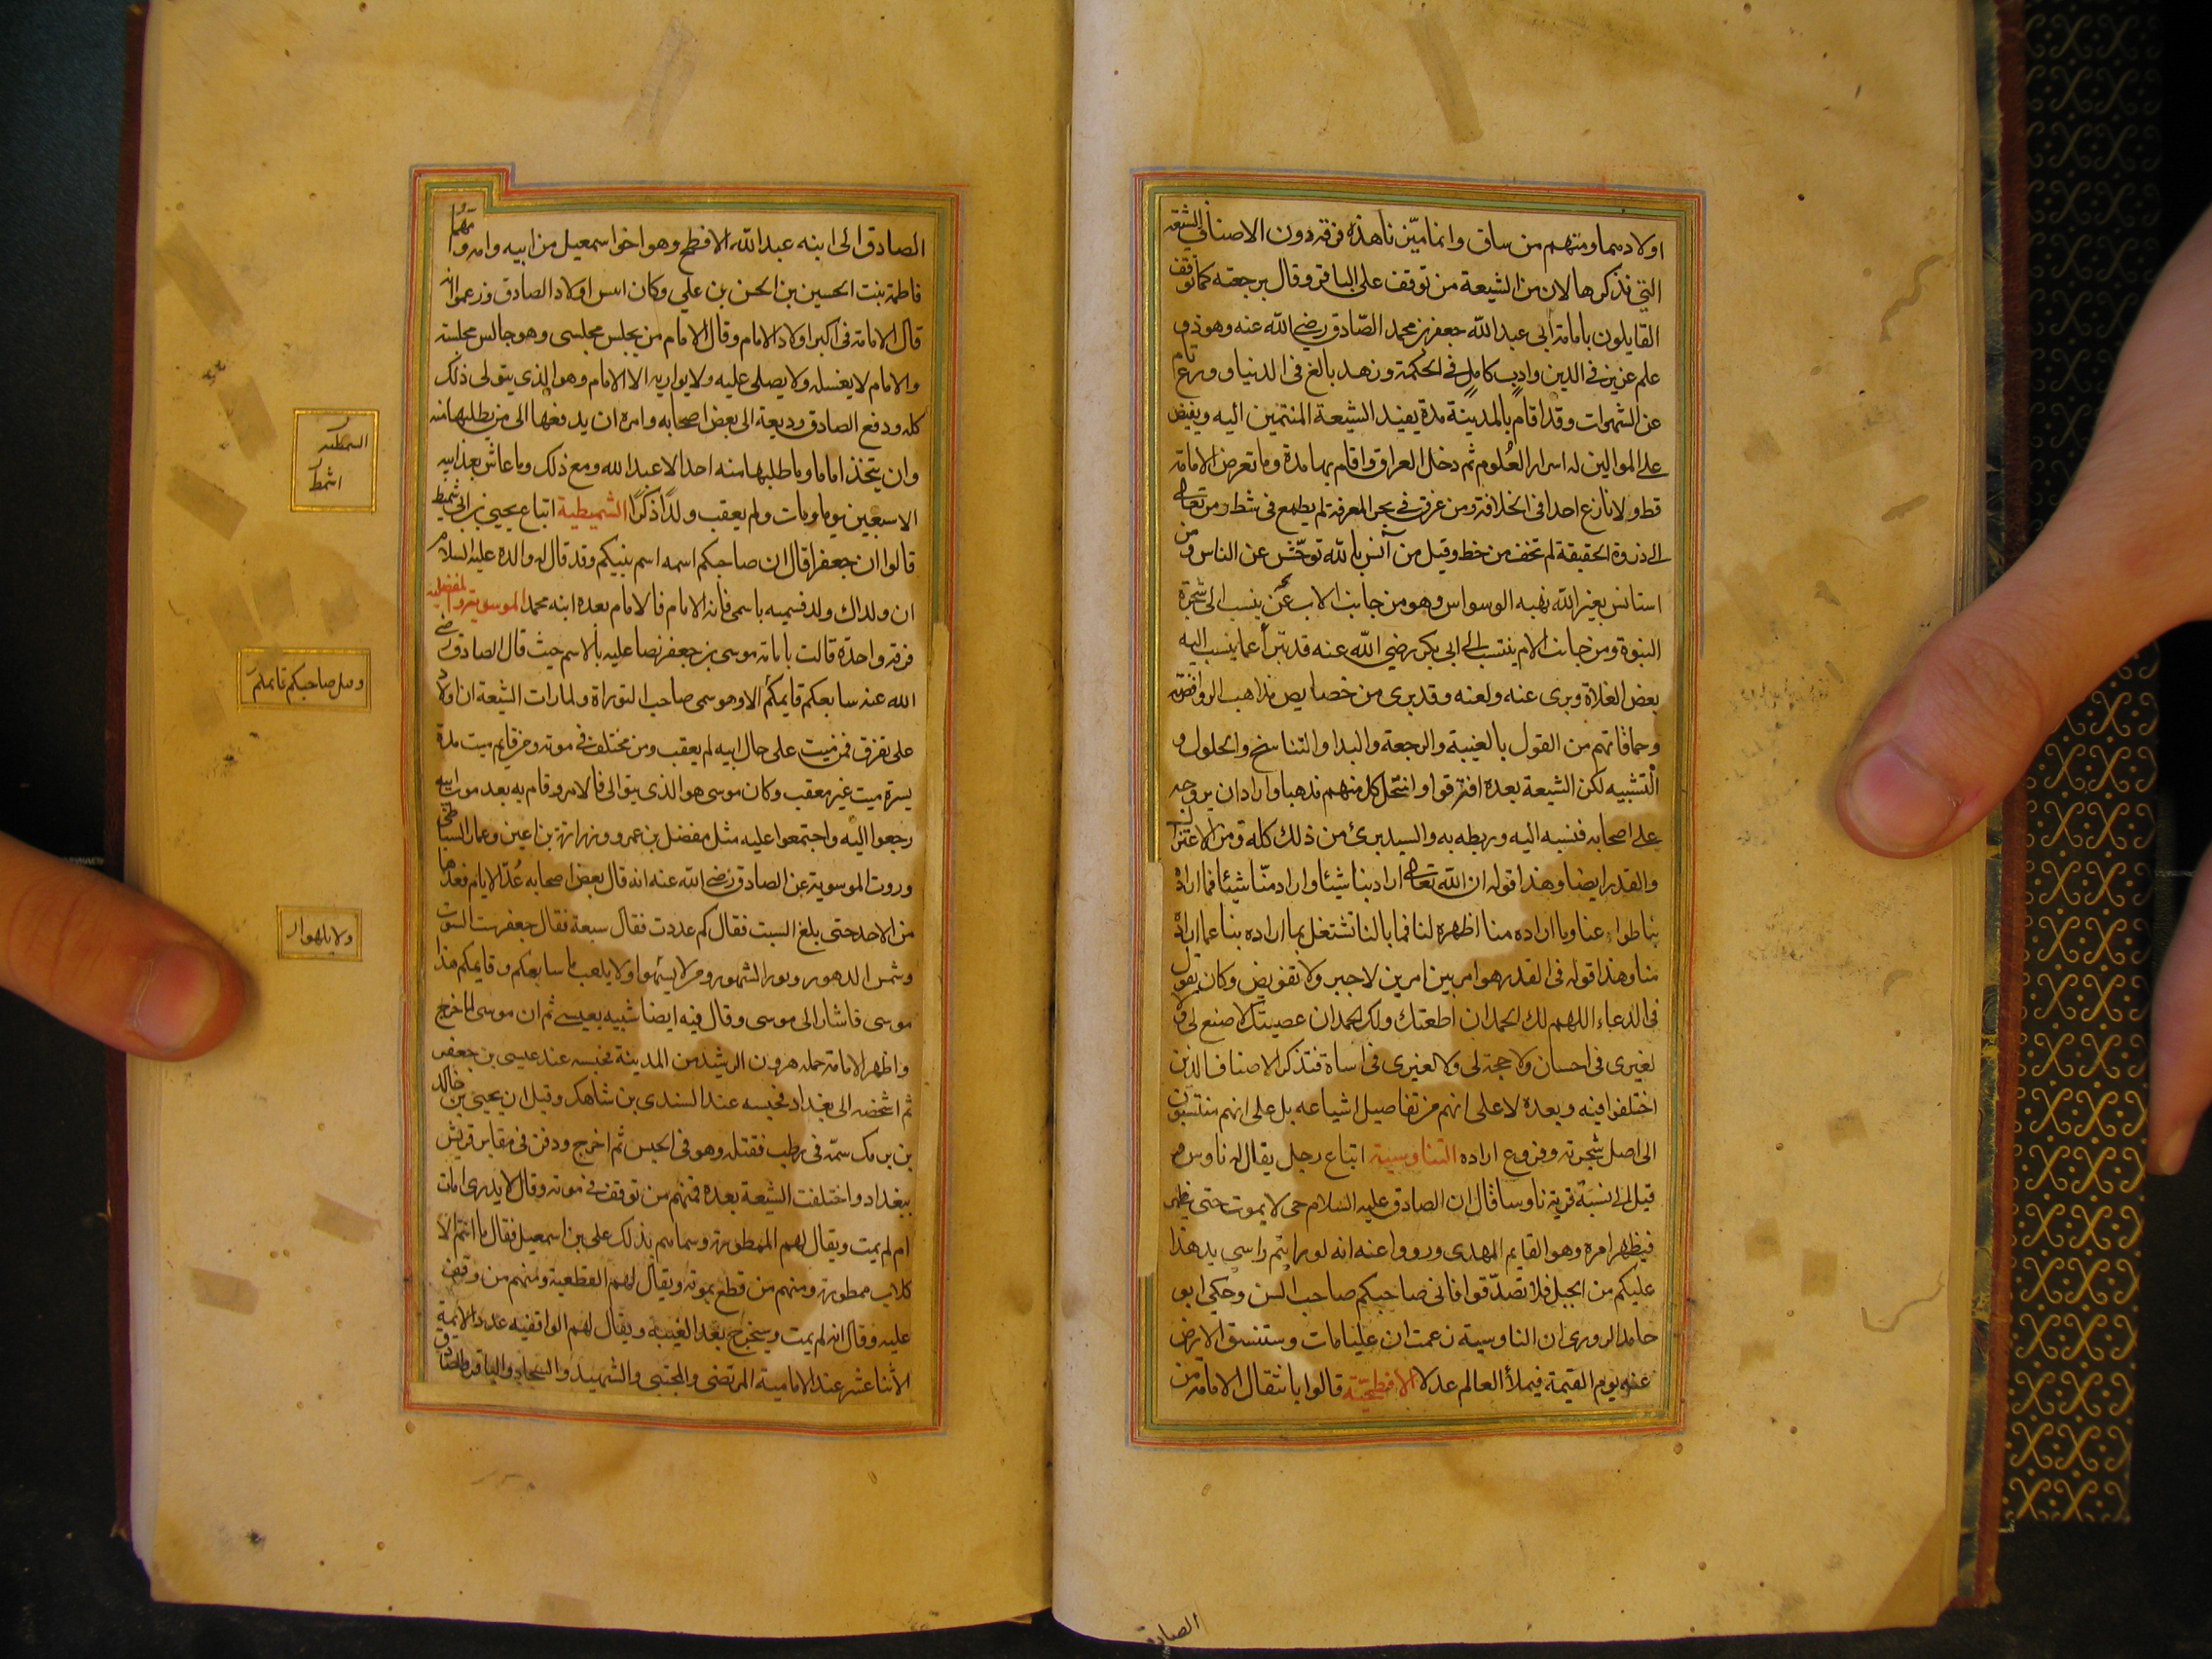 اولادهما ومنهم من ساق وانما ميّزنا هذه فرقة دون الاصناف الشيعة
التي نذكرها لان من الشيعة من توقف على الباقر وقال برجعته كما توقف
القايلون بامامة أبي عبد الله جعفر بن محمد الصّادق رضي الله عنه وهو ذو
علم عزيز في الدين وادب كامل في الحكمة وزهد بالغ في الدنيا وورع تام
عن الشهوات وقد اقام بالمدينة مدة يفيد الشيعة المنتمين اليه ويفيض
على الموالين له اسرار العُلوم ثم دخل العراق واقام بها مدة وما تعرض الامامة
قط ولا نازع احدا في الخلافة ومن غرق في بحر المعرفة لم يطمع في شط ومن تعالى
الى ذروة الحقيقة لم تخف من حط وقيل من آنس بالله توحّش عن الناس ومن
استانس بغير الله نهبه الوسواس وهو من جانب الاب ينسب الى شجرة
النبوة ومن جانب الام ينتسب الى ابي بكر رضي الله عنه قد تبرّأ عما ينسب اليه
بعض الغلاة وبرى عنه ولعنه وقد برى من خصايص مذاهب الروافض
وحماقاتهم من القول بالغيبة والرجعة والبدا والتناسخ والحلول و
التشبيه لكن الشيعة بعده افترقوا وانتحل كل منهم مذهبا واراد ان يروجه
على اصحابه فنسبه اليه وربطه به والسيد برئ من ذلك كله ومن الاعتزال
والقدر ايضا وهذا قوله ان الله تعالى اراد بنا شيئا واراد منّا شيئا فما اراده
بنا طواه عنا وما اراده منا اظهره لنا فما بالنا نشتغل بما اراده بنا عما اراده
منا وهذا قوله في القدر هو امر بين امرين لا جبر ولا تفويض وكان يقول
في الدعاء اللهم لك الحمد ان اطعتك ولك الحمد ان عصيتك لا صنع لي ولا
لغيري في احسان ولا حجة لي ولا لغيري في اساة فنذكر الاصناف الذين
اختلفوا فيه وبعده لا على انهم من تفاصيل اشياعه بل على انهم منتسبون
الى اصل شجرته وفروع اراده التناوسية اتباع رجل يقال له ناوس و
قيل الى نسبة قرية ناوسا قال ان الصادق عليه السلام حي لا يموت حتى يظهر
فيظهر امره وهو القايم المهدي ورووا عنه انه لو رايتم راسي يدهذا
عليكم من الجبل فلا تصدّقوا فاني صاحبكم صاحب السن وحكى ابو
حامد الزوزني ان الناوسية زعمت ان عليا مات وستنشق الارض
عنه يوم القيمة فيملأ العالم عدلا الافطحيّة قالوا بانتقال الامامة من
الصادق
الصادق الى ابنه عبد الله الافطح وهو اخو اسمعيل من ابيه وامه وامهما
فاطمة بنت الحسين بن الحسن بن علي وكان اسن اولاد الصادق وزعموا انه
قال الامامة في اكبر اولاد الامام وقال الامام من يجلس مجلسي وهو جالس مجلسه
والامام لا يغسله ولا يصلى عليه ولا يواريه الا الامام وهو الذي يتولى ذلك
كله ودفع الصادق وديعة الى بعض اصحابه وامره ان يدفعها الى من يطلبها منه
وان يتخذ اماما وما طلبها منه احد الا عبد الله ومع ذلك وما عاش بعد ابيه
الا سبعين يوما ومات ولم يعقب ولدًا ذكرًا الشميطية اتباع يحيى بن ابي شميط
قالوا ان جعفرا قال ان صاحبكم اسمه اسم نبيكم وقد قال له والده عليه السلام
ان ولد لك ولد فسميه باسمي فانه الامام فالامام بعده ابنه محمد الموسوية والمفضلية
فرقة واحدة قالت بامامة موسى بن جعفر نصا عليه بالاسم حيث قال الصادق رضي
الله عنه سابعكم قايمكم الا وهو سمي صاحب التوراة ولما رات الشيعة ان اولاد
على تفرق فمن ميت على حال ابيه لم يعقب ومن مختلف في موته ومن قايم ميت مدة
يسرة ميت غير معقب وكان موسى هو الذي يتوالى فالامر وقام به بعد موت ابيه
رجعوا اليه واجتمعوا عليه مثل مفضل بن عمرو وزرارة بن اعين وعمار الساباطي
وروت الموسوية عن الصادق رضي الله عنه انه قال بعض اصحابه عُدّ الايام فعدها
من الاحد حتى بلغ السبت فقال كم عددت فقال سبعة فقال جعفر سبت السبوت
وشمس الدهور ونور الشهور ومن لا يسهوا ولا يلعب سابعكم وقايمكم هذا
موسى فاشار الى موسى وقال فيه ايضا شبيه بعيسى ثم ان موسى لما خرج
واظهر الامامة حمله هرون الرشيد من المدينة فحبسه عند عيسى بن جعفر
ثم اشخصه الى بغداد فحبسه عند السندي بن شاهك وقيل ان يحيى بن خالد
بن برمك سمّه في رطب فقتله وهو في الحبس ثم اخرج ودفن في مقابر قريش
ببغداد واختلفت الشيعة بعده فمنهم من توقف في موته وقال لا يدرى امات
ام لم يمت ويقال لهم الممطورة وسماهم بذلك على بن اسمعيل فقال ما انتم الا
كلاب ممطورة ومنهم من قطع بموته ويقال لهم القطعية ومنهم من وقف
عليه وقال انه لم يمت وسيخرج بعد الغيبة ويقال لهم الواقفيه عدد الايمة
الاثنا عشر عند الامامية المرتضى والمجتبى والشهيد والسجاد والباقر والصادق
السمطية
اشمط
وقيل صاحبكم قايمكم
ولا يلهوا